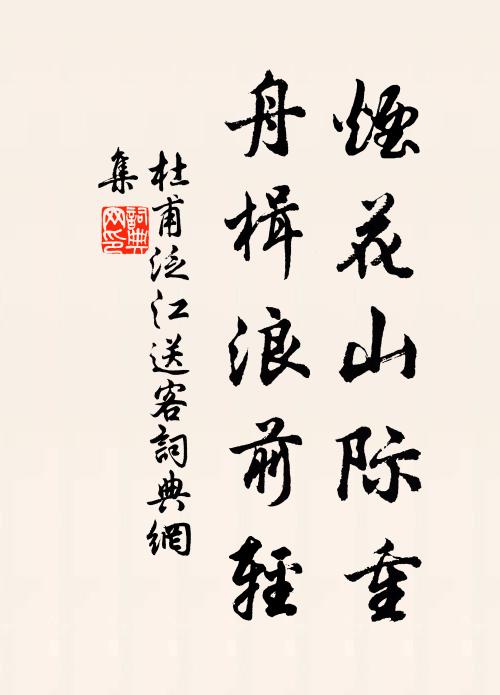 煙花山际重
舟楫浪前輕
杜甫泛江送客詞典網
集
詞典
网印